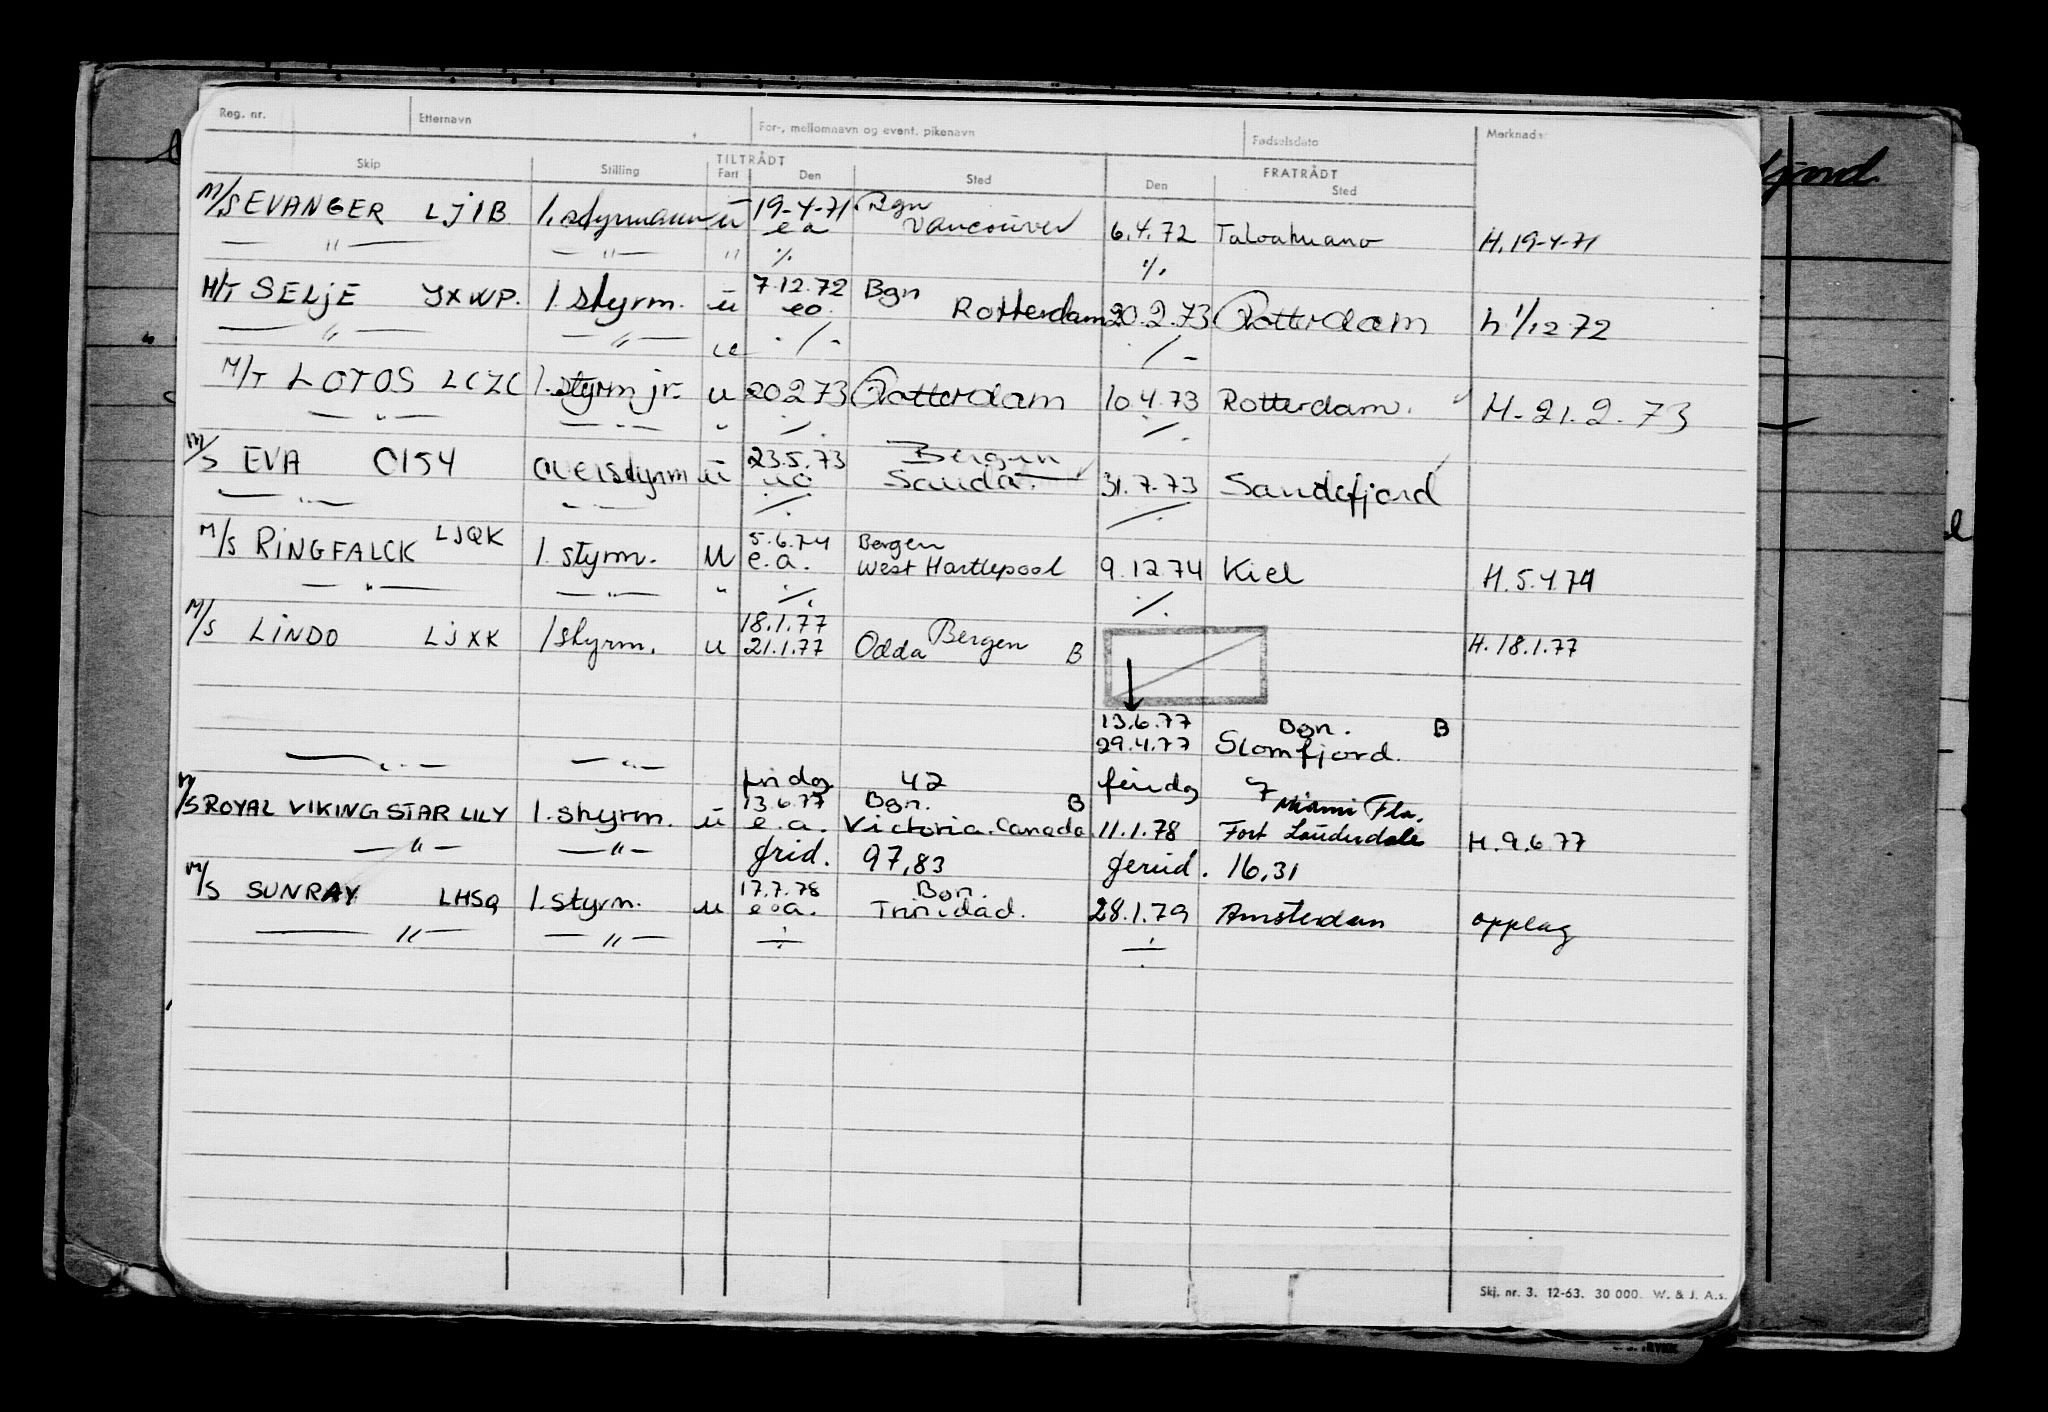 Reg. nr. Etternavn For-, mellomnavn og event. pikenavn Fødselsdato Merknader
Skip Stilling TILTRÅDT FRATRÅDT
Fart Den Sted Den Sted
M/S EVANGER LJIB 1. styrmann ū 19-4-71 Bgn
e a Vancouver 6.4.72 Talcahuano H. 19-4-71
— " — — " — " % %
M/T SELJE JXWP. 1 styrm. ū 7.12.72 Bgn
eo. Rotterdam 20.2.73 Rotterdam h 1/12 72
— " — — " — ./- ./-
M/T LOTOS LCZC 1. styrm jr. u 20 2 73 Rotterdam 10.4.73 Rotterdam. H. 21.2.73
— " — — " — " ./. ./.
M/S EVA CI54 overstyrm ū 23.5.73 Bergen
uo Sauda. 31.7.73 Sandefjord
— " — — " — ./. ./.
M/S RINGFALCK LJQK 1. styrm. U 5.6.74 Bergen
e.a. West Hartlepool 9.12.74 Kiel H. 5.4.74
— " — — " — " ./. ./.
M/S LINDO LJXK 1 styrm. u 18.1.77 Bergen
21.1.77 Odda B H. 18.1.77
13.6.77 Bgn. B
29.4.77 Glomfjord.
— " — — " — 42 7
M/S ROYAL VIKING STAR LILY 1. styrm. ū 13.6.77 Bgn. B Miami Fla.
e.a. Victoria. Canada 11.1.78 Fort Lauderdale H. 9.6.77
— " — — " — 97,83 16,31
M/S SUNRAY LHSQ 1. styrm. u 17.7.78 Bgn.
e.a. Trinidad. 28.1.79 Amsterdam opplag
— " — — " — ÷ ÷
Skj. nr. 3. 12-63. 30 000. W. & J. A.s.